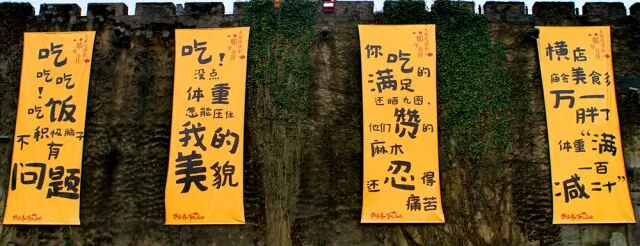 吃
吃吃
!吃饭
不积极脑子
有
问题
吃!
没点
体重
怎能压住
我的
美貌
你吃的
满足
还晒九图,
他们赞的
麻木
还忍得
痛苦
横店
庙会美食多
万一胖了
“体重“满
一百
减二十”